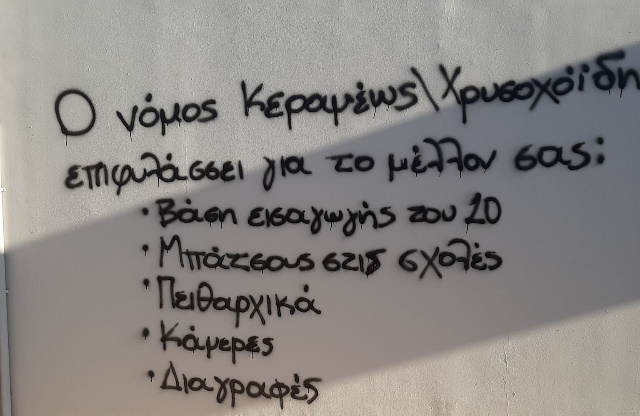 Ο νόμος Κεραμέως\Χρυσοχόϊδη
επιφυλάσσει για το μέλλον σας:
· Βάση εισαγωγής του 10
· Μπάτσους στις σχολές
· Πειθαρχικά
· Κάμερες
· Διαγραφές